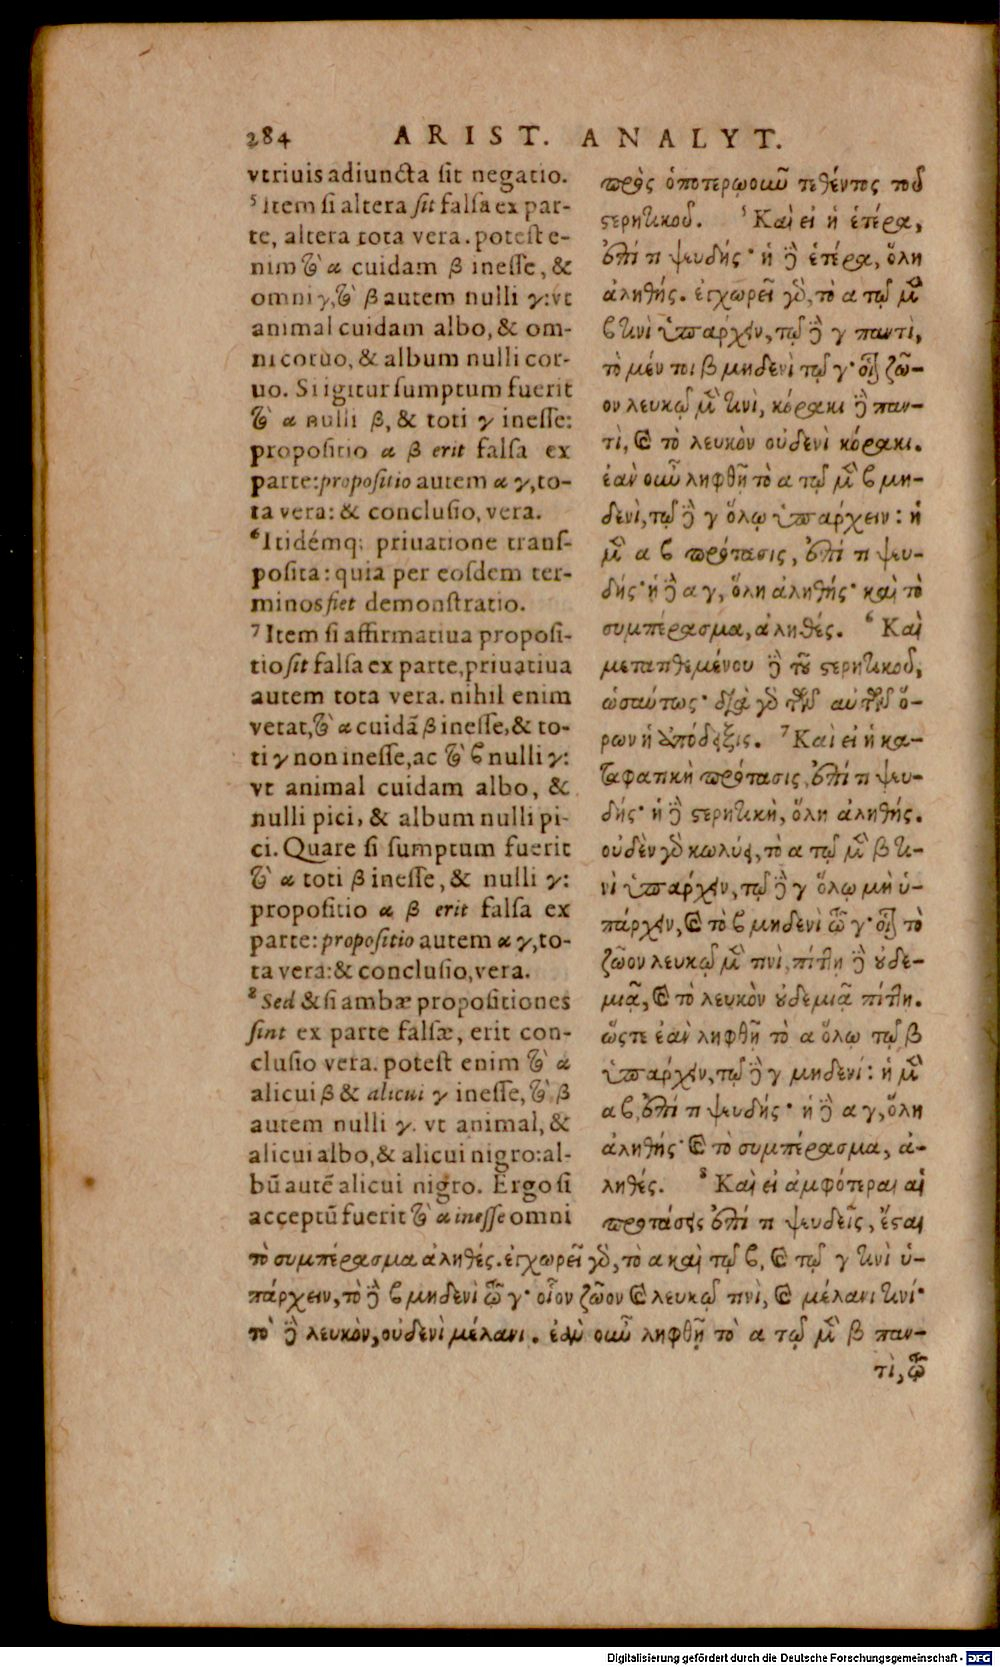 284 ARIST. ANALYT.
vtriuis adiuncta sit negatio.
⁵ Item si altera sit falsa ex par-
te, altera tota vera. potest e-
nim τὸ α cuidam β inesse, &
omni γ, τὸ β autem nulli γ: vt
animal cuidam albo, & om-
ni coruo, & album nulli cor-
uo. Si igitur sumptum fuerit
τὸ α nulli β, & toti γ inesse:
propositio α β erit falsa ex
parte: propositio autem α γ, to-
ta vera: & conclusio, vera.
⁶ Itidémq; priuatione trans-
posita: quia per eosdem ter-
minos fiet demonstratio.
⁷ Item si affirmatiua proposi-
tio sit falsa ex parte, priuatiua
autem tota vera. nihil enim
vetat, τὸ α cuidã β inesse, & to-
ti γ non inesse, ac τὸ β nulli γ:
vt animal cuidam albo, &
nulli pici, & album nulli pi-
ci. Quare si sumptum fuerit
τὸ α toti β inesse, & nulli γ:
propositio α β erit falsa ex
parte: propositio autem α γ, to-
ta vera: & conclusio, vera.
⁸ Sed & si ambæ propositiones
sint ex parte falsæ, erit con-
clusio vera. potest enim τὸ α
alicui β & alicui γ inesse, τὸ β
autem nulli γ. vt animal, &
alicui albo, & alicui nigro: al-
bũ autẽ alicui nigro. Ergo si
acceptũ fuerit τὸ α inesse omni
πρὸς ὁποτερῳοῦν τεθέντος τοῦ
στερητικοῦ. ⁵ Καὶ εἰ ἡ ἑτέρα,
ἐπί τι ψευδής· ἡ δὲ ἑτέρα, ὅλη
ἀληθής. ἐγχωρεῖ γὰρ, τὸ α τῷ μὲν
β τινὶ ὑπάρχειν, τῷ δὲ γ παντὶ,
τὸ μέντοι β μηδενὶ τῷ γ· οἷον ζῶ-
ον λευκῷ μὲν τινὶ, κόρακι δὲ παν-
τὶ, καὶ τὸ λευκὸν οὐδενὶ κόρακι.
ἐὰν οὖν ληφθῇ τὸ α τῷ μὲν β μη-
δενὶ, τῷ δὲ γ ὅλῳ ὑπάρχειν: ἡ
μὲν α β πρότασις, ἐπί τι ψευ-
δής· ἡ δὲ α γ, ὅλη ἀληθής· καὶ τὸ
συμπέρασμα, ἀληθές. ⁶ Καὶ
μετατιθεμένου δὲ τοῦ στερητικοῦ,
ὡσαύτως· διὰ γὰρ τῶν αὐτῶν ὅ-
ρων ἡ ἀπόδειξις. ⁷ Καὶ εἰ ἡ κα-
ταφατικὴ πρότασις, ἐπί τι ψευ-
δής· ἡ δὲ στερητικὴ, ὅλη ἀληθής.
οὐδὲν γὰρ κωλύει, τὸ α τῷ μὲν β τι-
νὶ ὑπάρχειν, τῷ δὲ γ ὅλῳ μὴ ὑ-
πάρχειν, καὶ τὸ β μηδενὶ τῷ γ· οἷον τὸ
ζῶον λευκῷ μὲν τινὶ, πίττῃ δὲ οὐδε-
μιᾷ, καὶ τὸ λευκὸν οὐδεμιᾷ πίττῃ.
ὥστε ἐὰν ληφθῇ τὸ α ὅλῳ τῷ β
ὑπάρχειν, τῷ δὲ γ μηδενί: ἡ μὲν
α β, ἐπί τι ψευδής· ἡ δὲ α γ, ὅλη
ἀληθής· καὶ τὸ συμπέρασμα, ἀ-
ληθές. ⁸ Καὶ εἰ ἀμφότεραι αἱ
προτάσεις ἐπί τι ψευδεῖς, ἔσται
τὸ συμπέρασμα ἀληθές. ἐγχωρεῖ γὰρ, τὸ α καὶ τῷ β, καὶ τῷ γ τινὶ ὑ-
πάρχειν, τὸ δὲ β μηδενὶ τῷ γ· οἷον ζῶον καὶ λευκῷ τινὶ, καὶ μέλανι τινί·
τὸ δὲ λευκὸν, οὐδενὶ μέλανι. ἐὰν οὖν ληφθῇ τὸ α τῷ μὲν β παν-
τὶ, τῷ
Digitalisierung gefördert durch die Deutsche Forschungsgemeinschaft - DFG